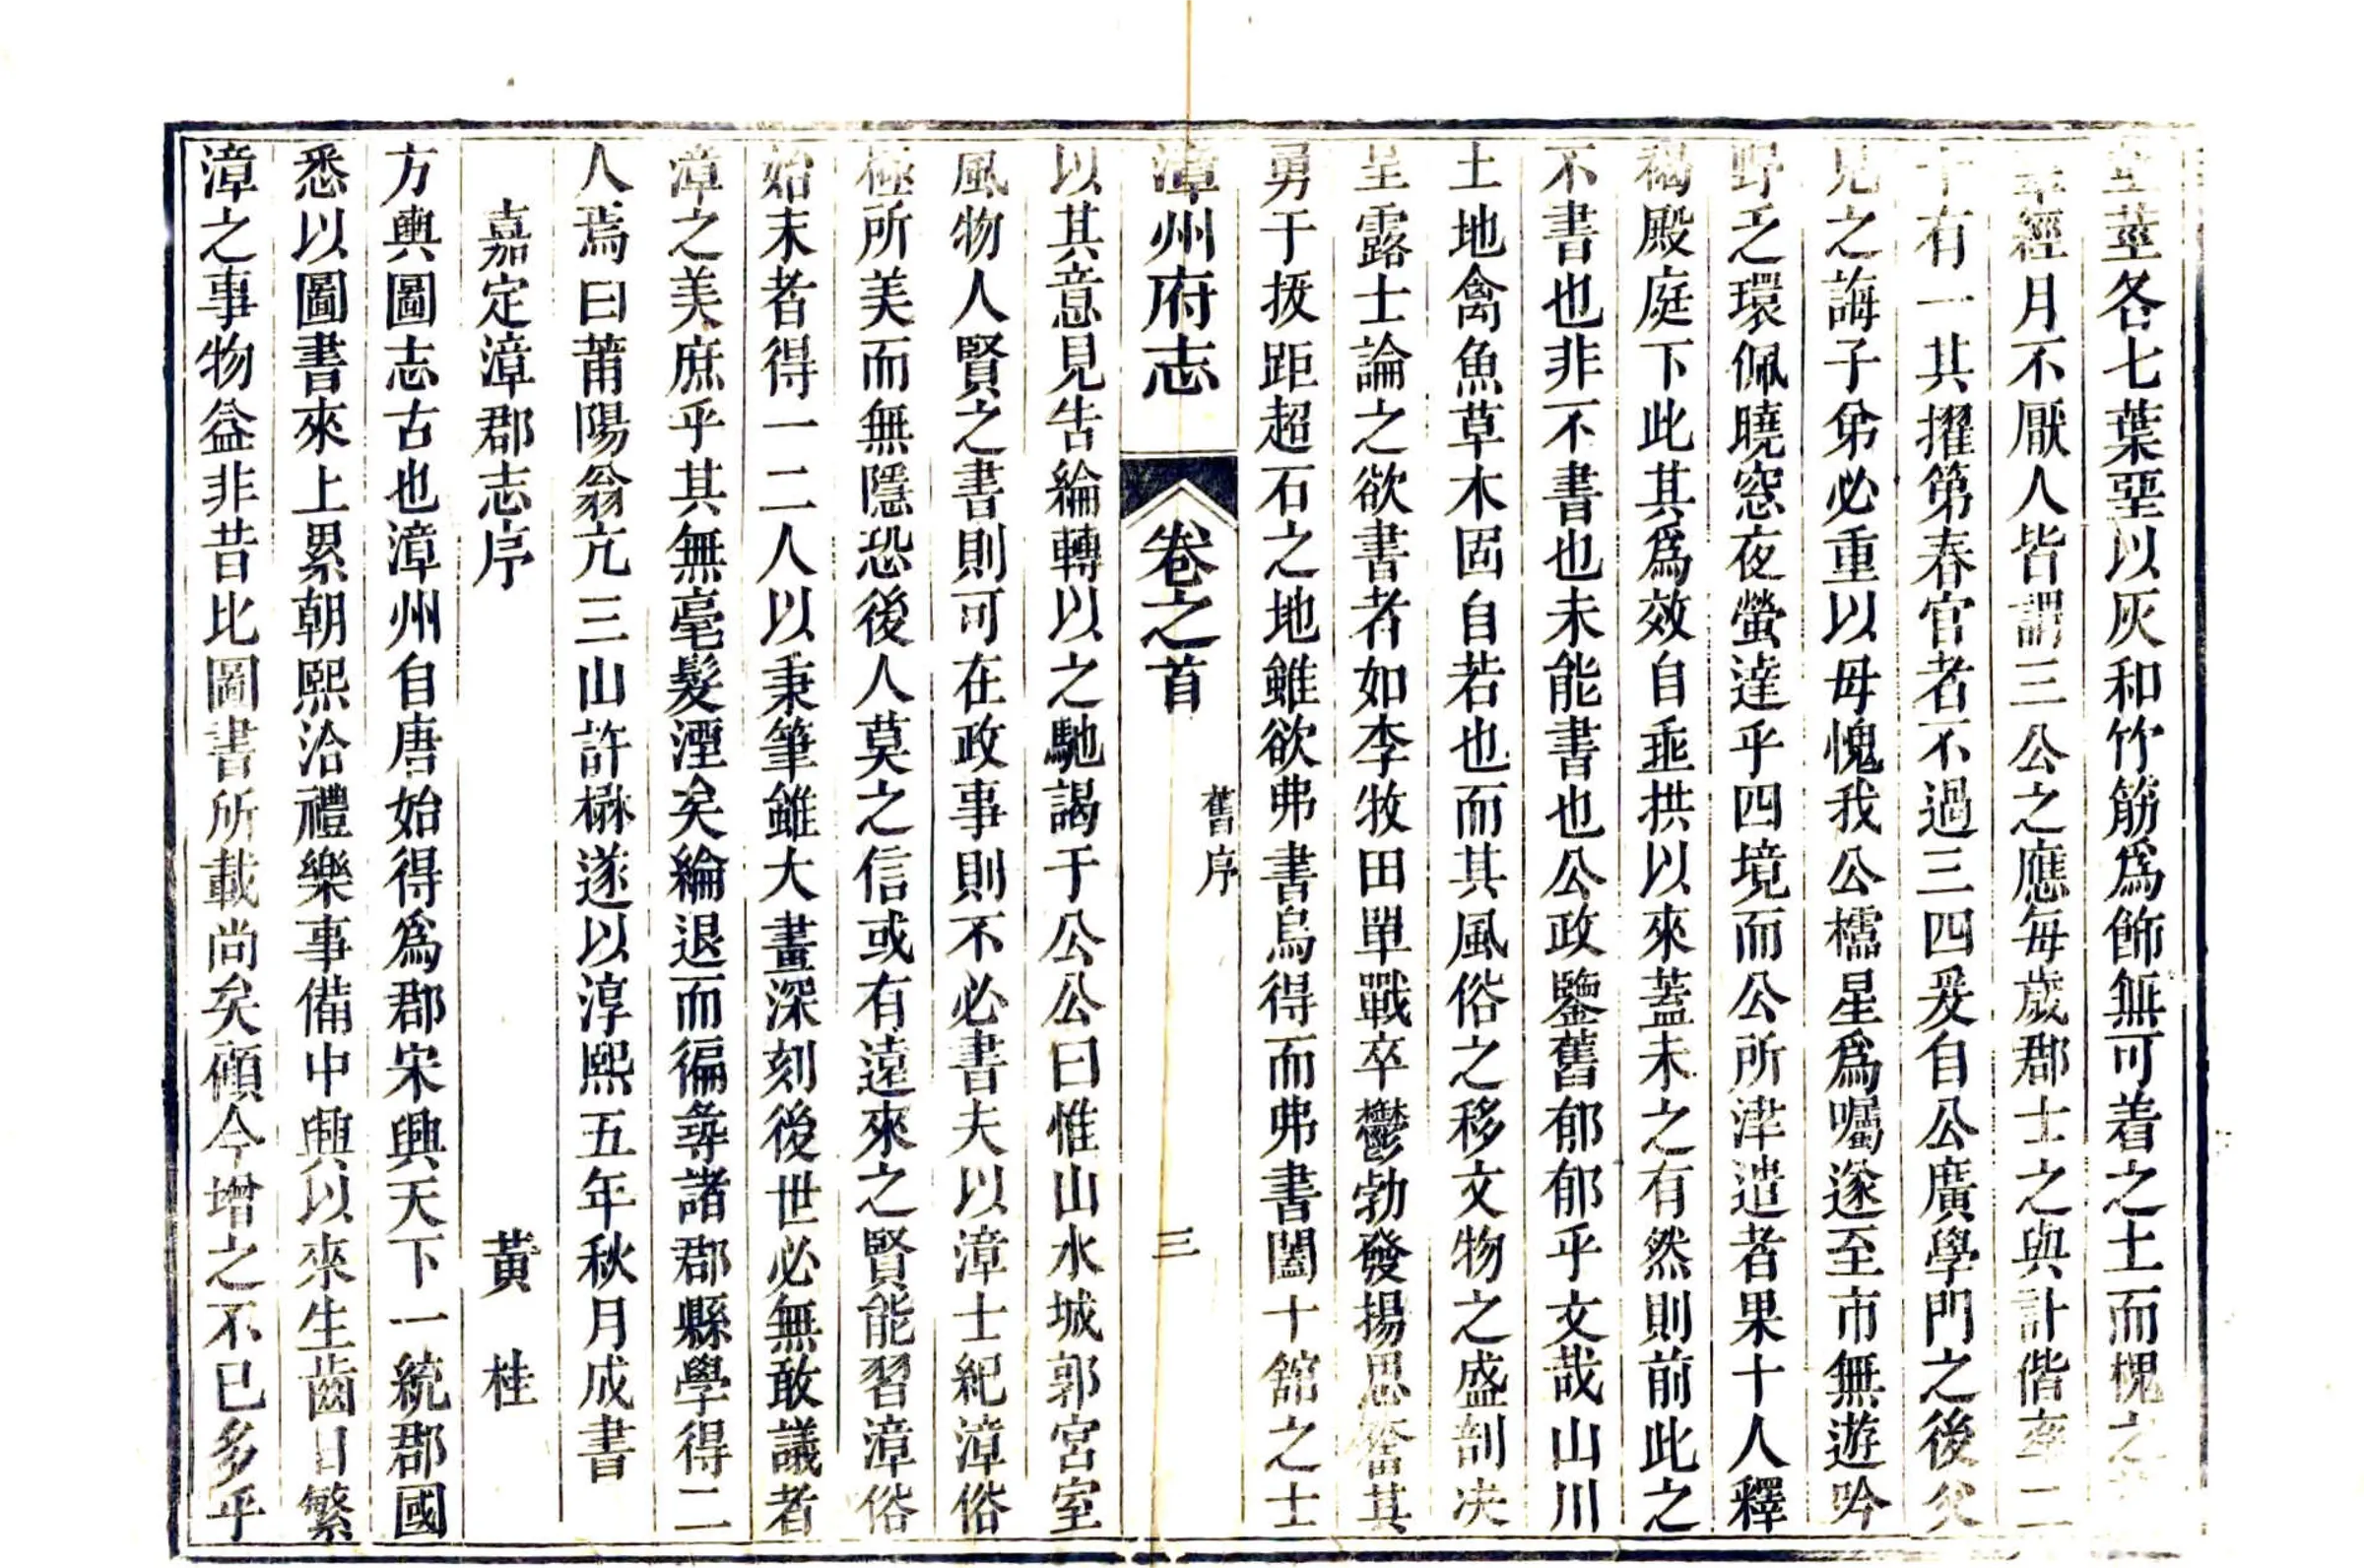 莖各七葉堊以灰和竹筋爲飾無可着之土而槐之
經月不厭人皆謂三公之應每歲郡士之與計偕率二
十有一其擢第春官者不過三四爰自公廣學門之後父
兄之誨子弟必重以毋愧我公櫺星爲囑遂至市無遊吟
野乏環佩曉窓夜螢達乎四境而公所津遣者果十人釋
褐殿庭下此其爲效自垂拱以來蓋未之有然則前此之
不書也非不書也未能書也公政鑒舊郁郁乎文哉山川
土地禽魚草木固自若也而其風俗之移文物之盛剖决
呈露士論之欲書者如李牧田單戰卒鬱勃發揚思奮其
勇于拔距超石之地雖欲弗書烏得而弗書闔十舘之士
漳州府志 卷之首 舊序 三
以其意見告綸轉以之馳謁于公公曰惟山水城郭宮室
風物人賢之書則可在政事則不必書夫以漳士紀漳俗
極所美而無隱恐後人莫之信或有遠來之賢能習漳俗
始末者得一二人以秉筆雖大書深刻後世必無敢議者
漳之美庶乎其無毫髮湮矣綸退而徧尋諸郡縣學得二
人焉曰莆陽翁亢三山許楙遂以淳熙五年秋月成書
嘉定漳郡志序 黃桂
方輿圖志古也漳州自唐始得爲郡宋興天下一統郡國
悉以圖書來上累朝熙洽禮樂事備中興以來生齒日繁
漳之事物益非昔比圖書所載尚矣顧今增之不已多乎